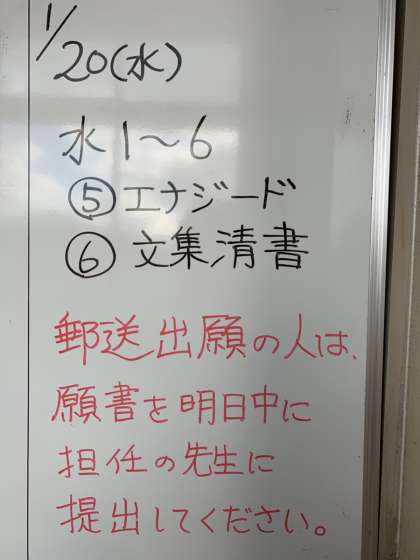 1/20(水)
水1〜6
⑤エナジード
⑥文集清書
郵送出願の人は、
願書を明日中に
担任の先生に
提出してください。